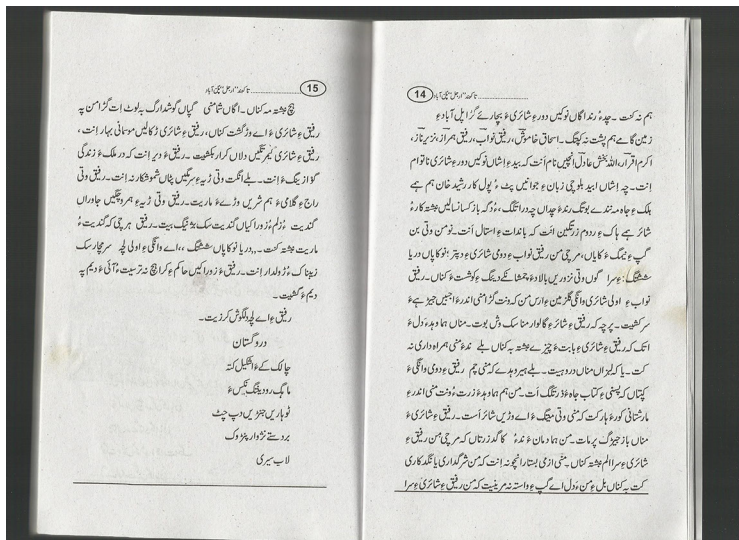 14 ........ تاکبند "ارجل" چین آباد
ہم نہ کنت۔ چدءُ رند اگاں نوکیں دورءِ شائری ءَ بچارئے گڑا پل آبادءِ
زمین گامے ہم پشت نہ کپتگ۔ اسحاق خاموش، رفیق نواب، رفیق ہمراز، نذیر ناز،
اکرم اقرار، اللہ بخش عادل انچیں نام اَنت کہ بید اِشاں نوکیں دورءِ شائری ناتوام
اِنت۔ چہ اِشاں ابید بلوچی زبانءِ جوانیں پٹ ءُ پول کار رشید خان ہم ہے
ہلک ءِ جاہ مندے بوتگ رندءَ چداں چہ دراتلگ، ءُ دگہ باز کسانسالیں نبشتہ کارءُ
شائر ہے ہاک ءِ ردوم زرتگیں اَنت کہ باندات ءِ استال اَنت۔ نوں من وتی بن
گپ ءِ نیمگ ءَ کایاں، مرچی من رفیق نواب ءِ دومی شائری ءِ دپتر؛ نوکاپاں دریا
ششتگ: ءِ سرا گوں وتی نزوریں بالاد ءُ چمشانکے دینگ ءِ کوشست ءَ کناں۔ رفیق
نواب ءِ اولی شائری وانگی نگزمین ءِ ارس من کہ ونت گڑا منی اندرءَ اجبیں چیزے ءَ
سرکشیت۔ پرچہ کہ رفیق ءِ شائری ءِ گالوار منا سک وش بوت۔ مناں ہما وہد دل ءَ
اتک کہ رفیق ءِ شائری ءِ بابت ءَ چیزے نبشتہ بہ کناں بلے ندءَ منی ہمراہ داری نہ
کت۔ یا کہ لبزاں مناں دروہیت۔ بلے ہیرو دہدے کہ منی چم رفیق ءِ دومی وانگی ءَ
کپتاں کہ پسنی ءِ کتاب جاہ ءَ دَر تلگ اَت۔ من ہما وہدءَ زرت ءُ ونت منی اندرءِ
مارشتانی کورءَ ہار کت کہ منی وتی میتگ ءَ اے وڑیں شائر اَست۔ رفیق ءِ شائری ءَ
مناں باز جیڑگ پرمات۔ من ہما دمان ءَ ندءُ کاگد زرتاں کہ مرچی من رفیق ءِ
شائری ءِ سرا الم نبشتہ کناں۔ منی ازمی بستار انچو نہ اِنت کہ من شرگداری یا نگدکاری
کت بہ کناں بل ءِ من ءُ دل اے گپ ءِ واستہ نہ مرینیت کہ من رفیق ءِ شائری ءِ سرا
15 ........ تاکبند "ارجل" چین آباد
ہچ نبشتہ مہ کناں۔ اگاں شما منی گپاں گوشدارگ بہ لوٹ اِت گڑا من پہ
رفیق ءِ شائری ءَ اے وڑ گشت کناں، رفیق ءِ شائری ڈکالیں موسمانی بہار اِنت،
رفیق ءِ شائری گیمرتگیں دلاں کرار بکشیت۔ رفیق ءَ دیر اِنت کہ در ملک ءَ زندگی
گوازینگ ءِ اِنت۔ بلے انگت وتی ڈیہ ءِ سرگیں پٹاں شموشکار نہ اِنت۔ رفیق وتی
راج ءِ گلامی ءَ ہم شریں وڑے ءَ ماریت۔ رفیق وتی ڈیہ ءِ ہمروچگیں جاوراں
گندیت ءُ زلم ءُ زوراکیاں گندیت سک بڑنیگ بیت۔ رفیق ہرچی کہ گندیت ءُ
ماریت نبشتہ کنت۔ ،، دریا نوکاپاں ششتگ ،، اے وانگی ءِ اولی لچہ سرمچار سک
زیبناک ءُ ڑولدار اِنت۔ رفیق ءَ زوراکیں حاکم ءِ کِرّا ہچ نہ ترسیت ءُ آئی ءَ دیم پہ
دیم ءَ گشیت۔
رفیق ءِ اے لچہءَ دلگوش کرزیت۔
دروگستان
چالک کےءَ اشکیل کتہ
ماہگ رودینتگ گیس ءَ
نوہاریں جنزیں دپ چٹ
بردستے نژوار پنزوک
لاب سیری